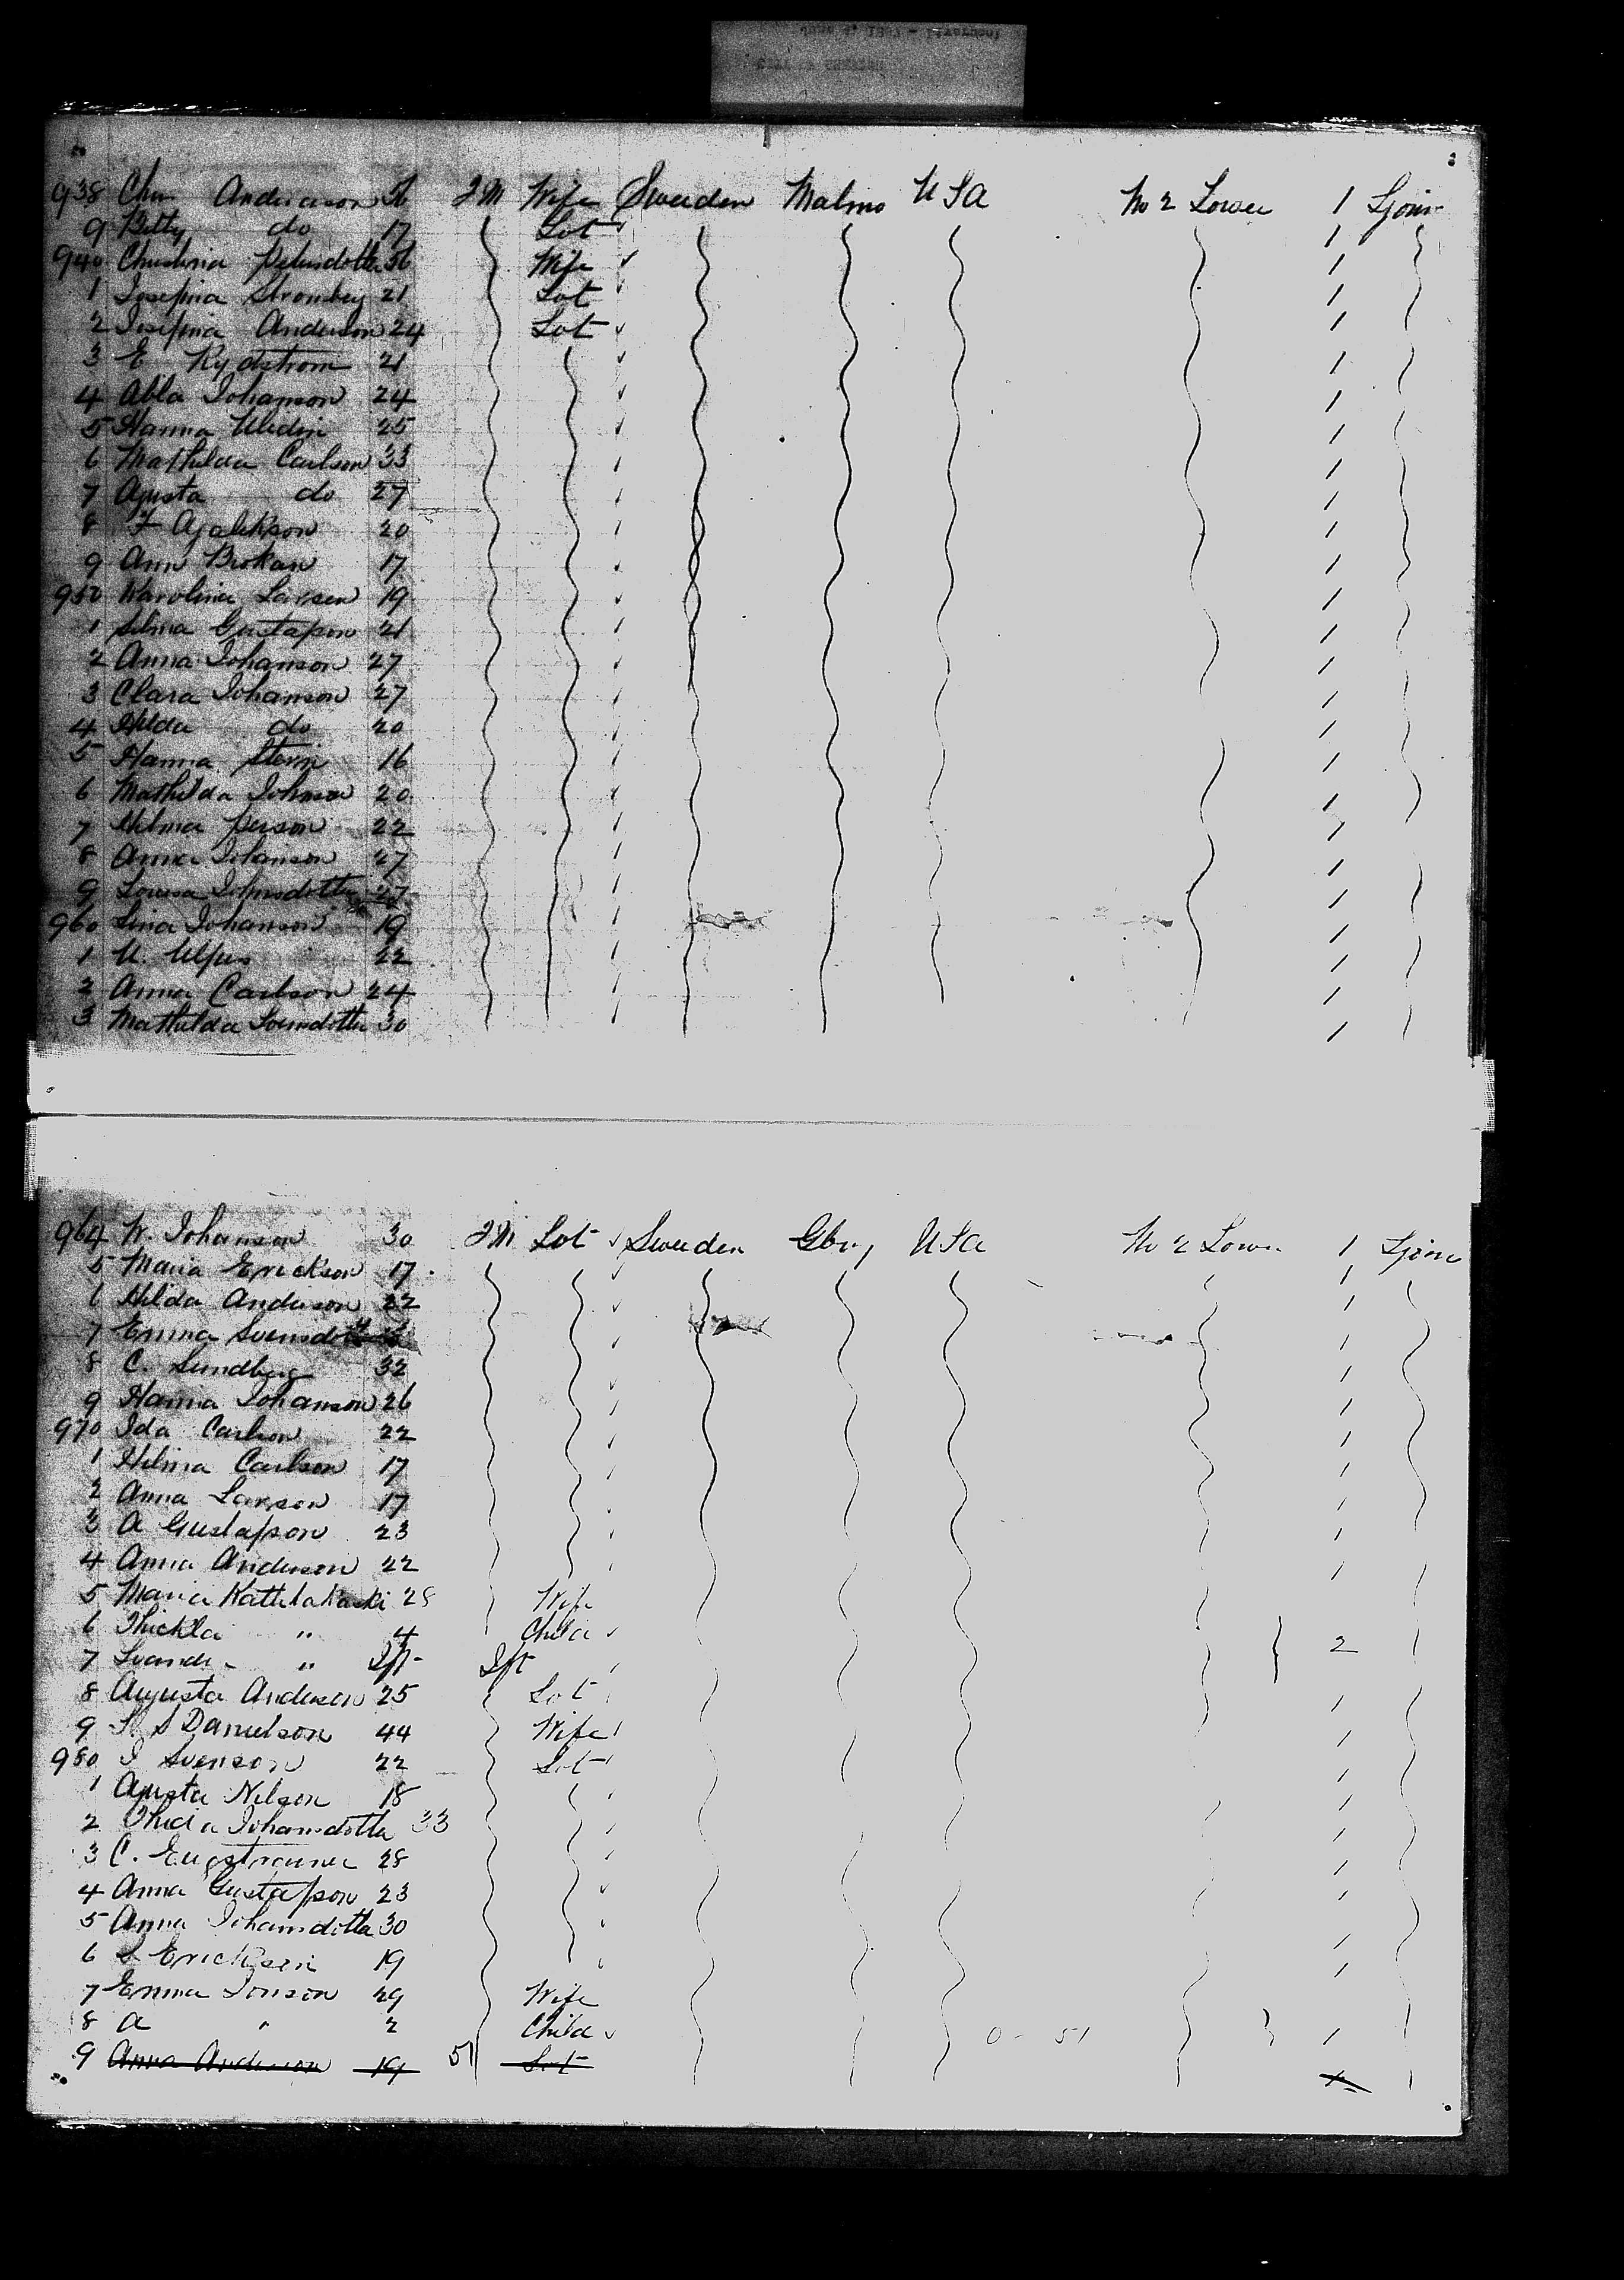 938 Chr Anderson 56 2 M Wife Sweden Malmo USA No 2 Lower 1 Sjour
9 Betty do 17 Sot 1
940 Christina Petersdotter 56 Wife 1
1 Josefina Stromberg 21 Sot 1
2 Josefina Anderson 24 Sot 1
3 E Rydstrom 21 1
4 Abla Johanson 24 1
5 Hanna 25 1
6 Mathilda Carlson 33 1
7 Agusta do 27 1
8 F 20 1
9 Ann Brokan 17 1
950 Karolina Larsen 19 1
1 Selma Gustafson 21 1
2 Anna Johanson 27 1
3 Clara Johanson 27 1
4 Hilda do 20 1
5 Hanna Sterin 16 1
6 Mathilda Johnson 20 1
7 Hilma Person 22 1
8 Anna Johanson 27 1
9 Lovisa Johnsdotter 27 1
960 Lina Johanson 19 1
1 U. 22 1
2 Anna Carlson 24 1
3 Mathilda Svensdotter 30 1
964 W. Johanson 30 2 M Sot Sweden Gbrg USA No 2 Lower 1 Sjour
5 Maria Erickson 17 1
6 Hilda Anderson 22 1
7 Emma Svensdotter 1
8 C. Sundberg 32 1
9 Hanna Johanson 26 1
970 Ida Carlson 22 1
1 Hilma Carlson 17 1
2 Anna Larson 17 1
3 A Gustafson 23 1
4 Anna Anderson 22 1
5 Maria 28 Wife
6 Thickla " 4 Child 2
7 " Ift Ift
8 Augusta Anderson 25 Sot 1
9 S Danielson 44 Wife 1
980 I Svenson 22 Sot 1
1 Agusta Nilson 18 1
2 Johansdotter 33 1
3 C. 28 1
4 Anna Gustafson 23 1
5 Anna Johansdotter 30 1
6 S Ericksen 19 1
7 Emma Jonson 29 Wife
8 A " 2 Child 0 - 51 1
9 Anna Anderson 19 51 Sot 1